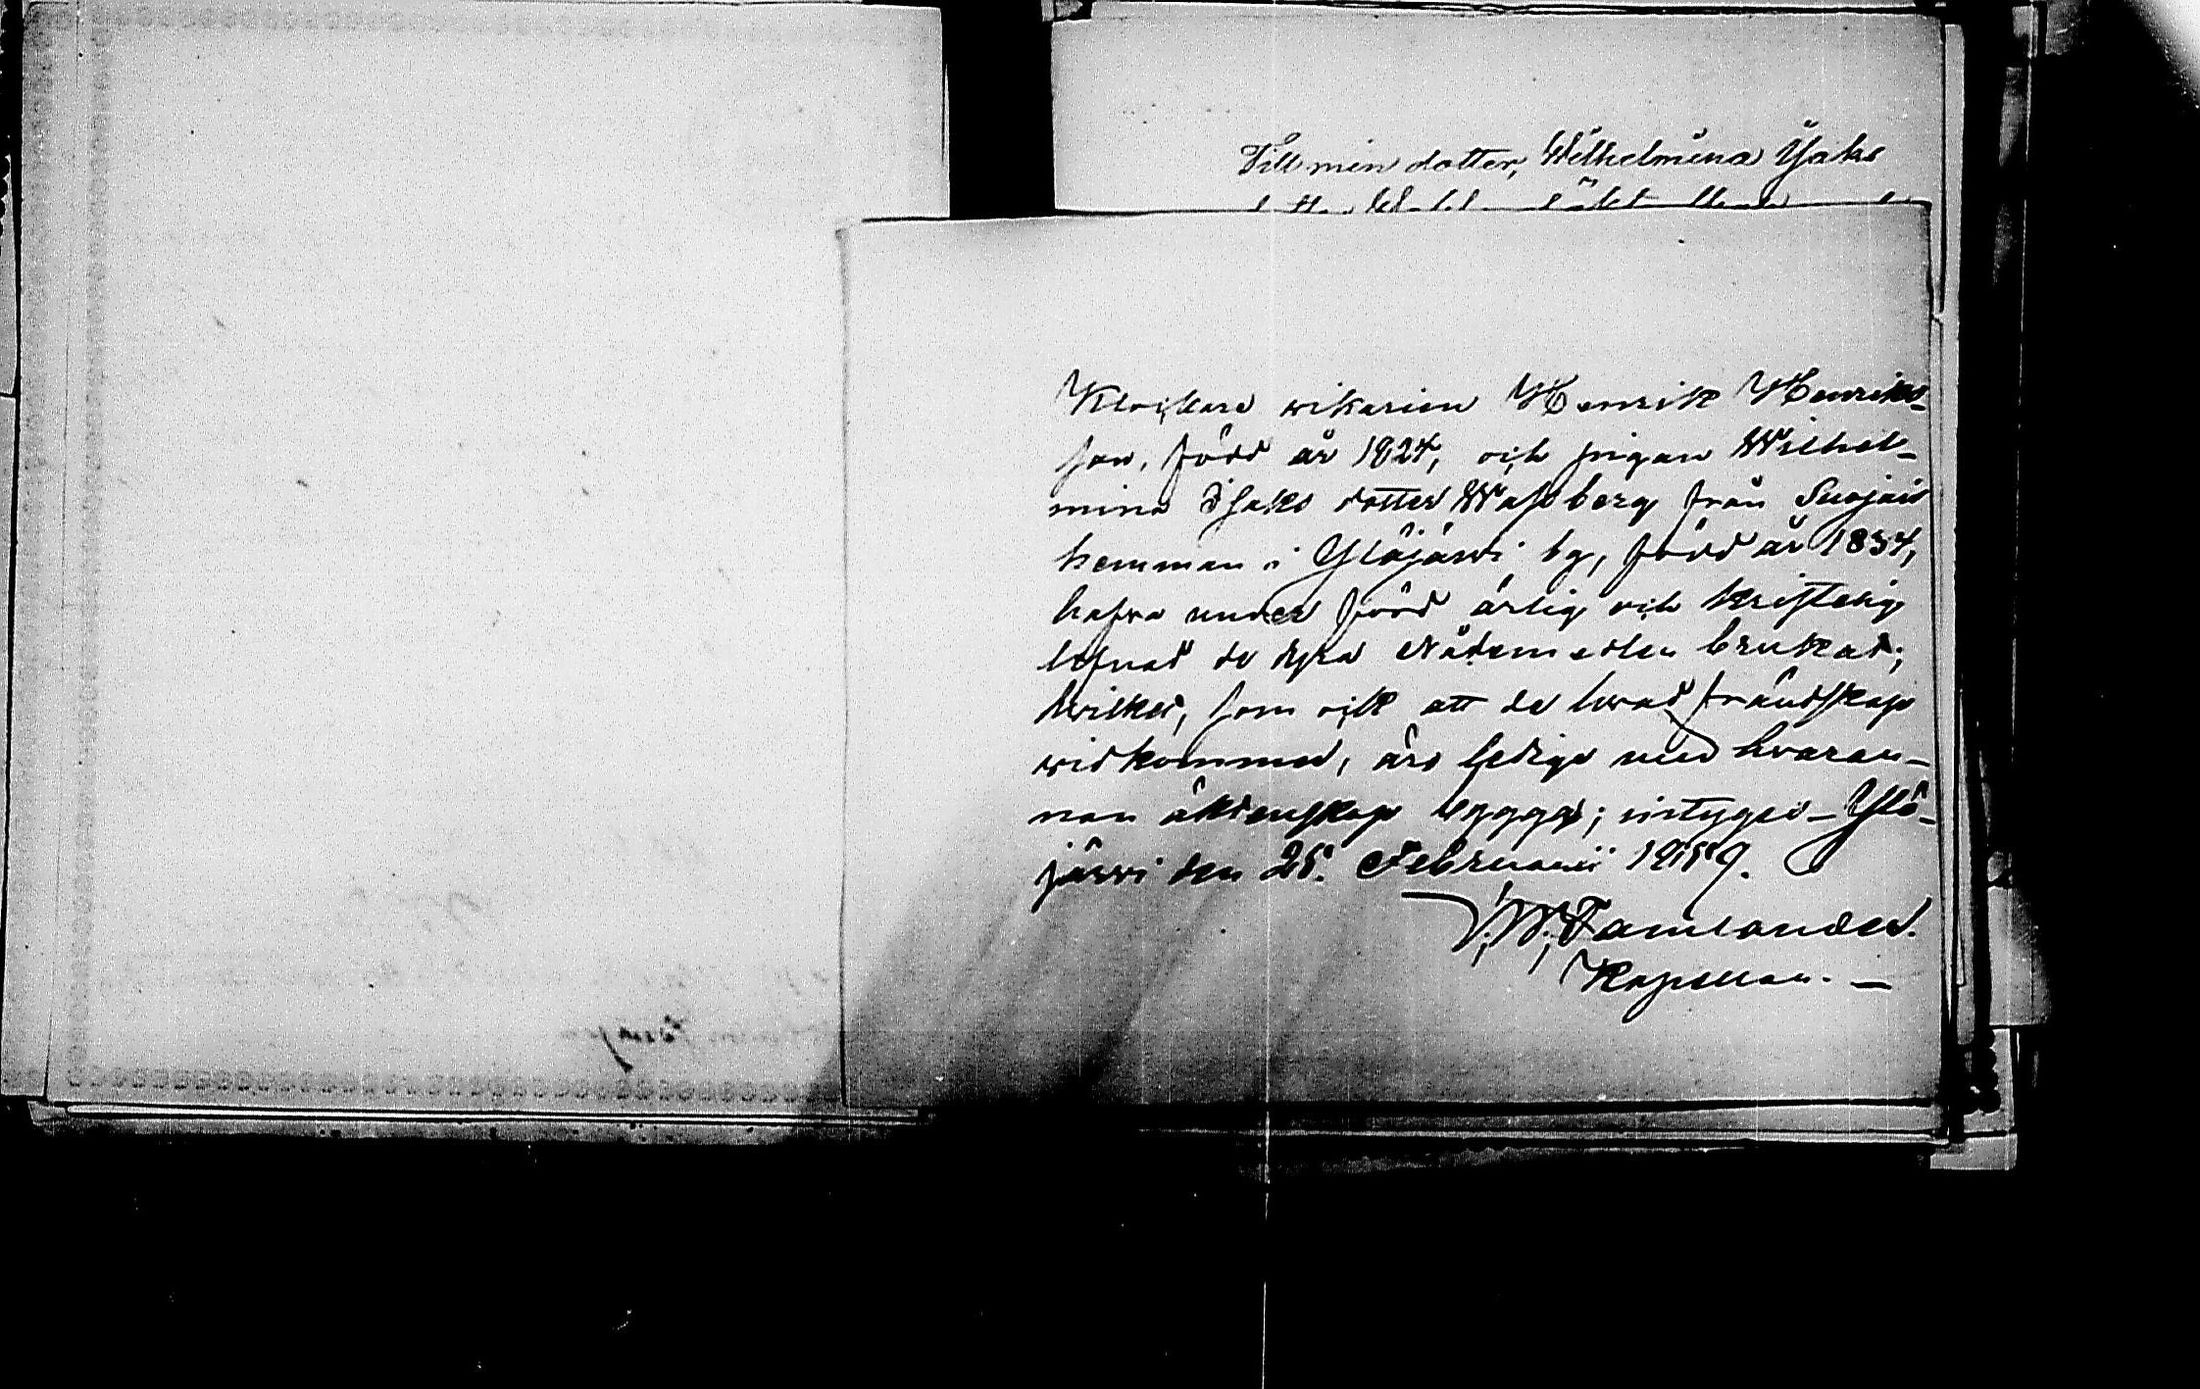 Till min dotter, Wilhelmina Isaks
Klockare wikarien Henrik Henriks-
son, född år 1824, och pigan Wilhel-
mina Isaks dotter Wahlberg från Suojais
hemman i Ylöjärwi by, född år 1834,
hafva under förd ärlig och kristelig
lefnad de dyra Nådemedlen brukat;
hwilket, som ock att de hwad frändskap
widkommer, äro ledige med hvaran-
nan äktenskap bygga; intygas – Ylö-
järwi den 25. Februarii 1859.
Kapellan. –